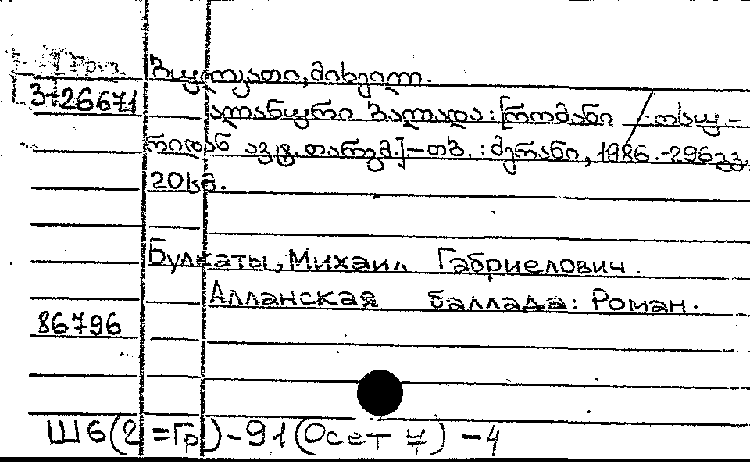 Груз
3-26671
ბულკათი, მიხეილ.
ალანური ბალადა: [რომანი / ოსუ-
რიდან ავტ. თარგმ.] – თბ. : მერანი, 1986. - 296 გვ.
20 სმ.
Булкаты, Михаил Габриелович.
Алланская баллада: Роман.
86796
Ш6(2=Гр)-91(Осет ч) -4